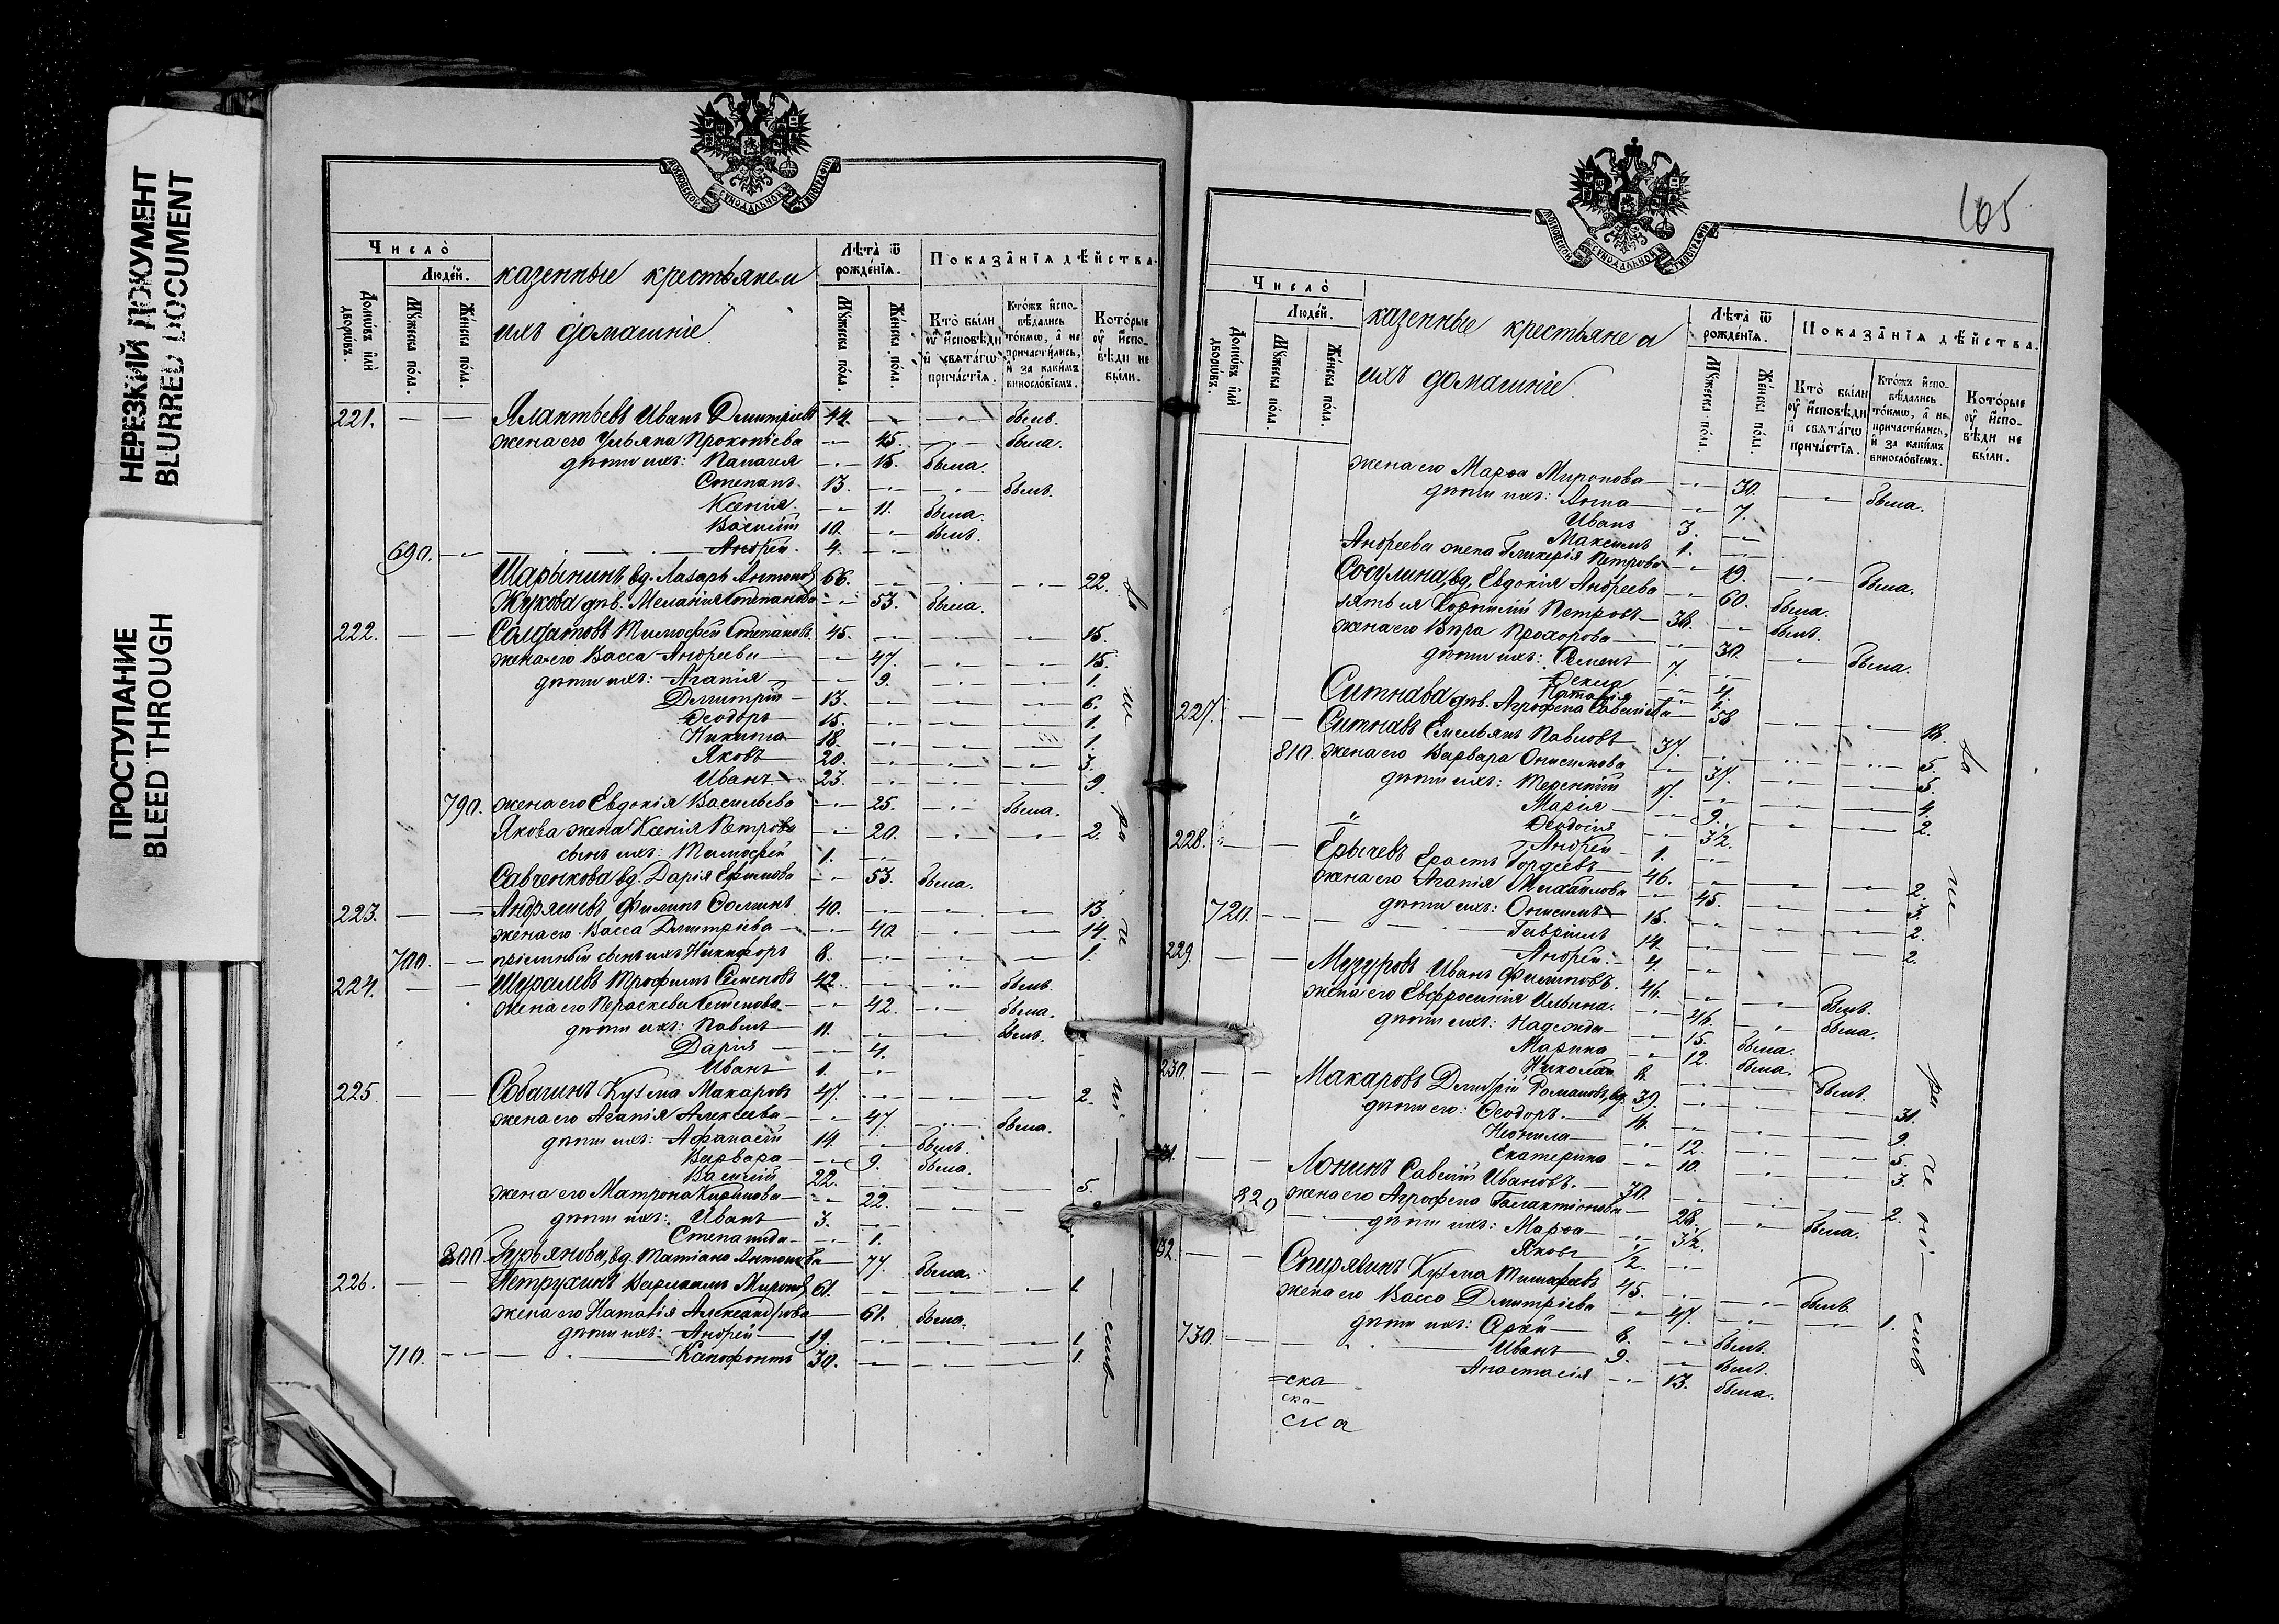 НЕРЕЗКИЙ ДОКУМЕНТ
BLURRED DOCUMENT
ПРОСТУПАНИЕ
BLEED THROUGH
МОСКОВСКОЙ СѴНОДАЛЬНОЙ ТИПОГРАФІИ
Число̀
Люде́й.
Домѡ́въ и҆лѝ дворѡ́въ.
Мꙋ́жеска по́ла.
Же́нска по́ла.
казенные крестьяне и
ихъ домашніе.
Лѣта̀ ѿ рожде́нїѧ.
Мꙋ́жеска по́ла.
Же́нска по́ла.
Показа̂нїѧ дѣ́йства.
Кто̀ бы́ли ᲂу҆ и҆́сповѣди и҆ свѧта́гѡ прича́стїѧ.
Кто́жъ и҆спо-вѣ́дались то́кмѡ, а҆ не причасти́лись, и҆ за каки́мъ виносло́вїемъ.
Кото́рые ᲂу҆ и҆спо-вѣди не бы́ли.
221. — — Алактьевъ Иванъ Дмитріевъ 44. былъ.
жена его Ульяна Прокопіева 45. была.
дѣти ихъ: Пелагея 15. была.
Степанъ 13. былъ.
Ксенія 11. была.
Василій 10. былъ.
690. Андрей. 4.
Шарынинъ вд. Лазарь Антоновъ 66. 22.
Жукова дѣв. Меланія Степанова 53. была.
222. — — Солдатовъ Тимофей Степановъ. 45. 15.
жена его Васса Андреева 47. 15.
дѣти ихъ: Агапія 9. 1.
Дмитрій 13. 6.
Ѳеодоръ 15. 1.
Никита 18. 1.
Яковъ 20. 3.
Иванъ 23. 9.
790. жена его Евдокія Васильева 25. была.
Якова жена Ксенія Петрова 20. 2.
сынъ ихъ: Тимофей 1.
Савченкова вд. Дарія Ефимова 53. была.
223. — — Андряшевъ Филипъ Ѳоминъ 40. 13.
жена его Васса Дмитріева 40 14.
700. пріемный сынъ ихъ Никифоръ 8. 1.
224. — — Шуралевъ Трофимъ Семеновъ 42. былъ.
жена его Параскева Степанова 42. была.
дѣти ихъ: Павелъ 11. былъ.
Дарія 4.
Иванъ 1.
225. — — Собагинъ Кузма Макаровъ 47. 2.
жена его Агапія Алексеева 47. была.
дѣти ихъ: Афанасій 14. былъ.
Варвара 9. была.
Василій 22. 5.
жена его Матрона Кирилова 22.
дѣти ихъ: Иванъ 3.
Степанида 1.
800. Гурьянова, вд. Татіана Антонова 77. была.
226. — — Петрухинъ Варлаамъ Мироновъ 61. 1.
жена его Наталія Александрова 61. была.
дѣти ихъ: Андрей 19. 1.
710. Ксенофонтъ 30. 1.
105
МОСКОВСКОЙ СѴНОДАЛЬНОЙ ТИПОГРАФІИ
Число̀
Люде́й.
Домѡ́въ и҆лѝ дворѡ́въ.
Мꙋ́жеска по́ла.
Же́нска по́ла.
казенные крестьяне и
ихъ домашніе.
Лѣта̀ ѿ рожде́нїѧ.
Мꙋ́жеска по́ла.
Же́нска по́ла.
Показа̂нїѧ дѣ́йства.
Кто̀ бы́ли ᲂу҆ и҆́сповѣди и҆ свѧта́гѡ прича́стїѧ.
Кто́жъ и҆спо-вѣ́дались то́кмѡ, а҆ не причасти́лись, и҆ за каки́мъ виносло́вїемъ.
Кото́рые ᲂу҆ и҆спо-вѣди не бы́ли.
жена его Марѳа Миронова 30. была.
дѣти ихъ: Анна 7.
Иванъ 3.
Максимъ 1.
Андреева жена Гликерія Петрова 19. была.
Сосулина, вд. Евдокія Андреева 60. была.
зять ея Корнилій Петровъ 38. былъ.
жена его Вѣра Прохорова 30. была.
дѣти ихъ: Семенъ 7.
Ѳекла 4.
Наталія 1.
227. — — Ситнава дѣв. Агрофена Савельева 58 18.
Ситнавъ Емельянъ Павловъ 37. 5.
810. жена его Варвара Онисимова 37. 5.
дѣти ихъ: Терентій 17. 4.
Марія 9. 2.
Ѳеодосія 3½.
Андрей 1.
228. — — Ерычевъ Ерастъ Гордеевъ 46. 2.
жена его Агапія Михайлова 45. 3.
дѣти ихъ: Онисимъ 15. 2.
720. Гавріилъ 14. 2.
Андрей. 4.
229. — — Музуровъ Иванъ Филиповъ. 46. былъ.
жена его Евфросинія Ильина. 46. была.
дѣти ихъ: Надежда 15. была.
Марина 12. была.
Николай 8. былъ.
230. — — Макаровъ Дмитрій Романовъ, вд. 39. 31.
дѣти его: Ѳеодоръ. 16. 9.
Неонила 12. 5.
Екатерина 10. 3.
231. — — Лонинъ Савелій Ивановъ. 30. 2.
820 жена его Агрофена Галактіонова 28. была.
дѣти ихъ: Марѳа 3½.
Яковъ ½.
232. — — Спирявинъ Кузма Тимофеевъ 45. былъ.
жена его Васса Дмитріева 47. 1.
дѣти ихъ: 8. былъ.
730. Иванъ 9. былъ.
Анастасія 13. была.
=ска
ска
ска